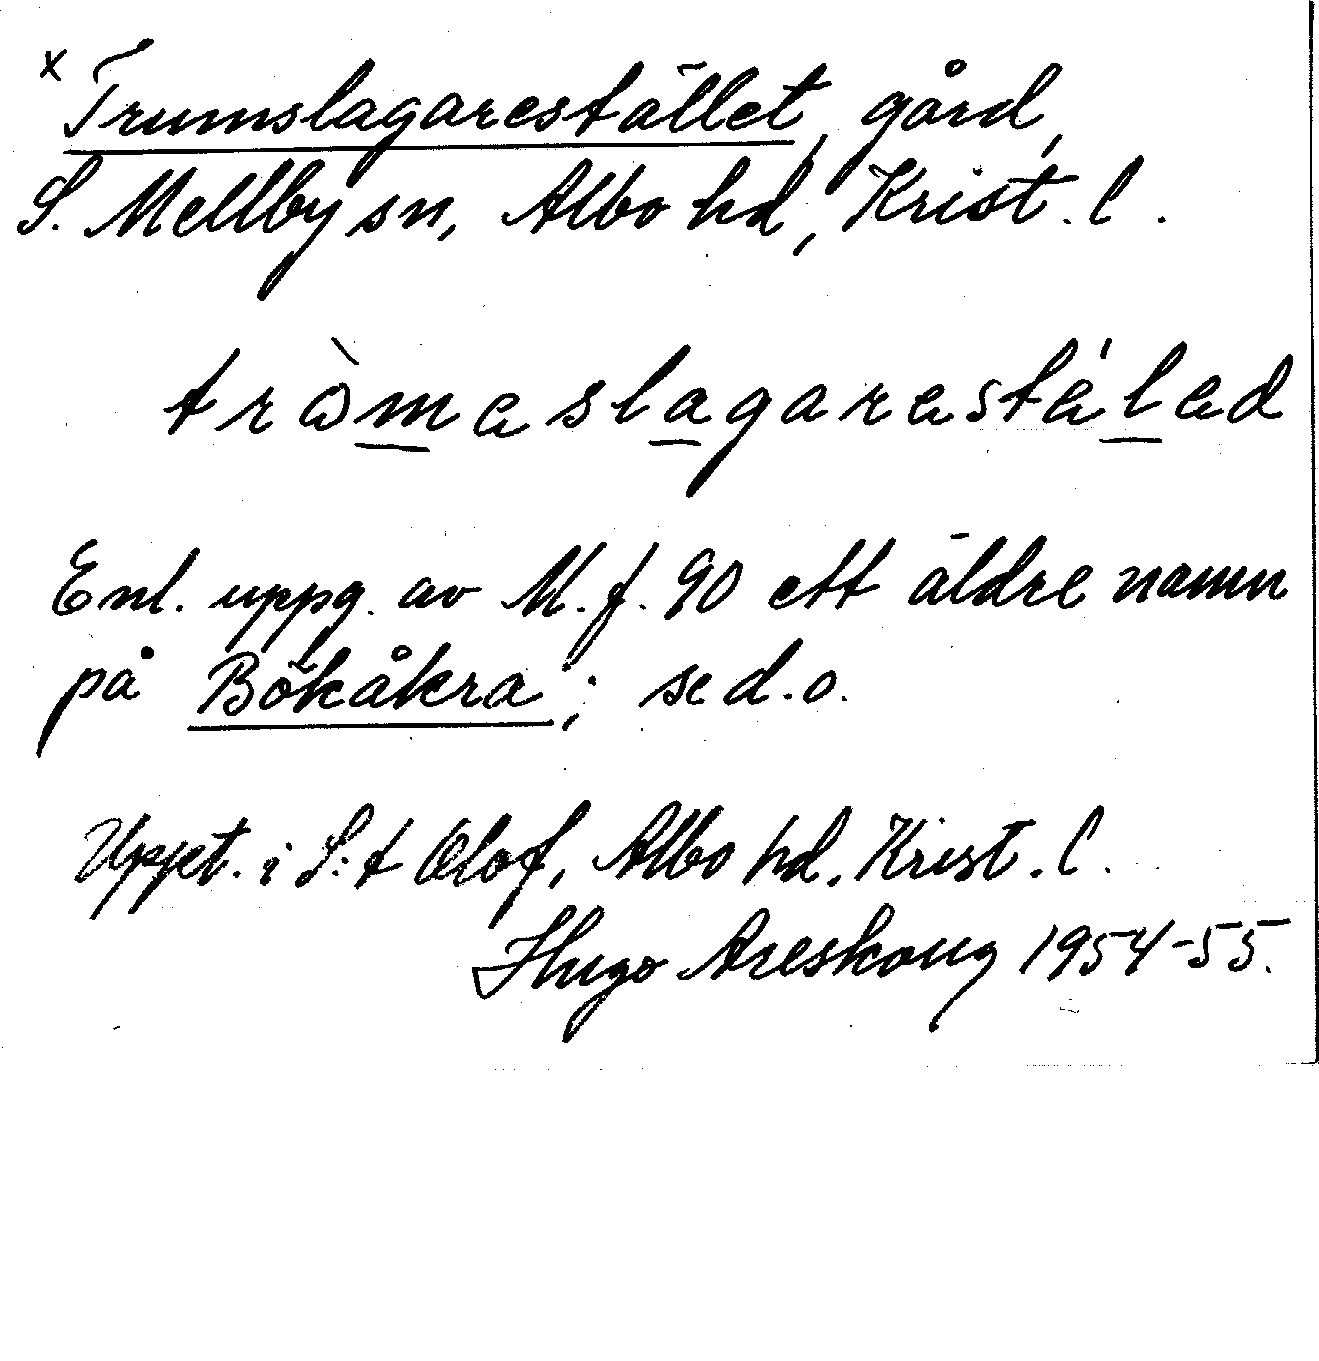 x Trumslagarestället, gård,
S. Mellby sn, Albo hd, Krist. l.
tròmaslagarestälad
Enl. uppg. av M. f. 90 ett äldre namn
på Bökåkra; se d.o.
Uppt. i S:t Olof, Albo hd. Krist. l.
Hugo Areskoug 1954-55.